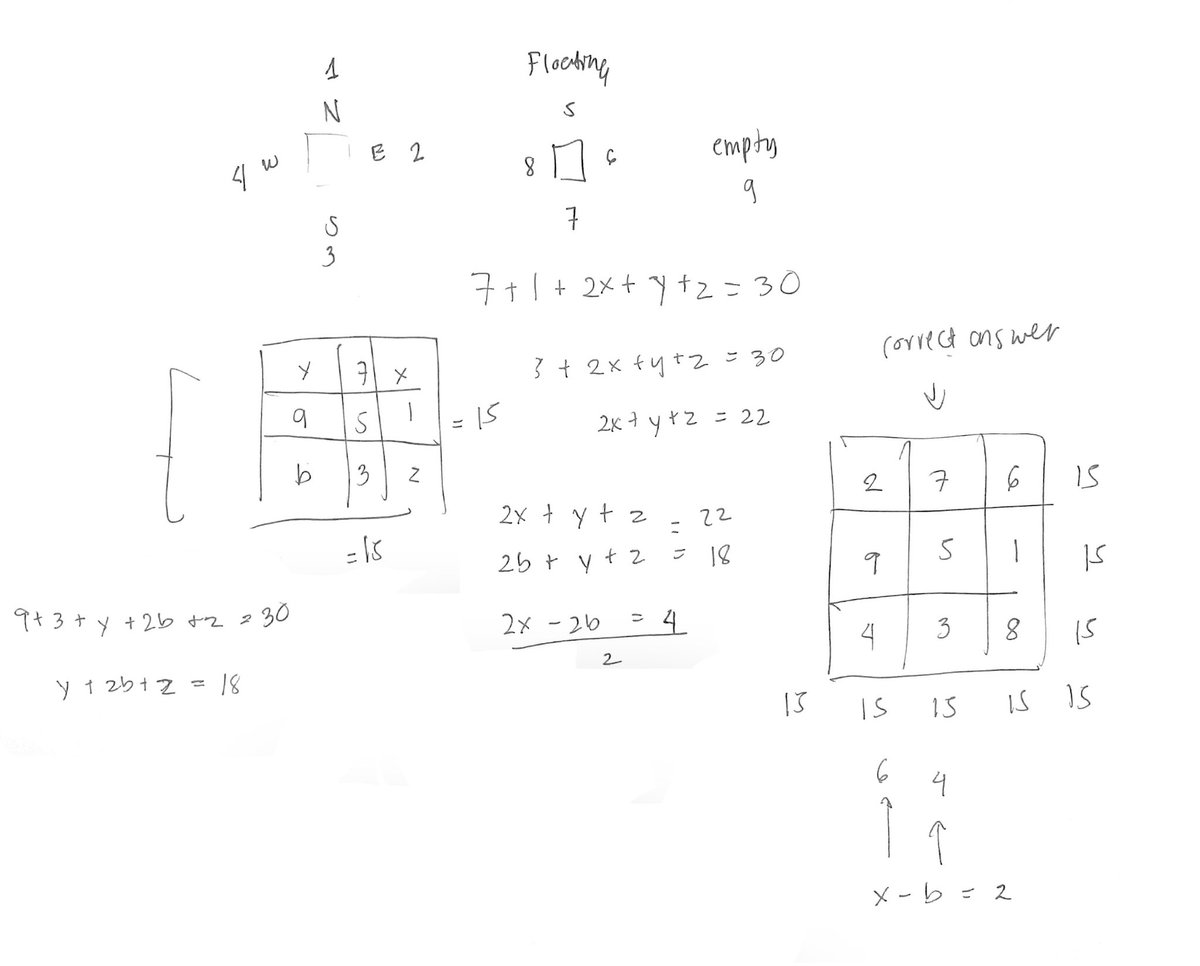 1
N
4 W E 2
S
3
Floating
5
8 6
7
empty
9
7 + 1 + 2x + y + z = 30
3 + 2x + y + z = 30
2x + y + z = 22
y 7 x
9 5 1 = 15
b 3 z
= 15
2x + y + z = 22
2b + y + z = 18
2x - 2b = 4
2
9 + 3 + y + 2b + z = 30
y + 2b + z = 18
correct answer
2 7 6 15
9 5 1 15
4 3 8 15
15 15 15 15 15
6 4
x - b = 2